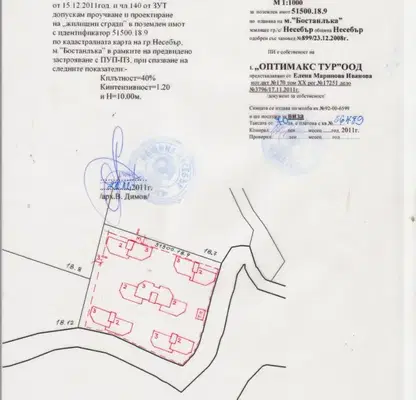 от 15.12.2011год. и чл 140 от ЗУТ
допускам проучване и проектиране
на „жилищни сгради” в поземлен имот
с идентификатор 51500.18.9
по кадастралната карта на гр Несебър,
м."Бостанлъка" в рамките на предвидено
застрояване с ПУП-ПЗ, при спазване на
следните показатели:-
Кплътност=40%
Кинтензивност=1.20
и Н=10.00м.
2011г.
/арх.В. Димов/
М 1:1000
за поземлен имот 51500.18.9
по плана на м."Бостанлъка"
землище гр./с/ Несебър община Несебър
одобрен със заповед №899/23.12.2008г.
ПИ е собственост на
1. „ОПТИМАКС ТУР”ООД
представлявано от Елена Маринова Иванова
нот.акт №170 том XX рег.№17251 дело
№3796/17.11.2011г.
/документ за собственост/
Скицата се издава по молба вх.№92-00-6599
и ще послужи за виза
2011г.
51500.18.9
18.7
18.8
18.12
2
3
3
2
3
2
2
3
3
2
2
3